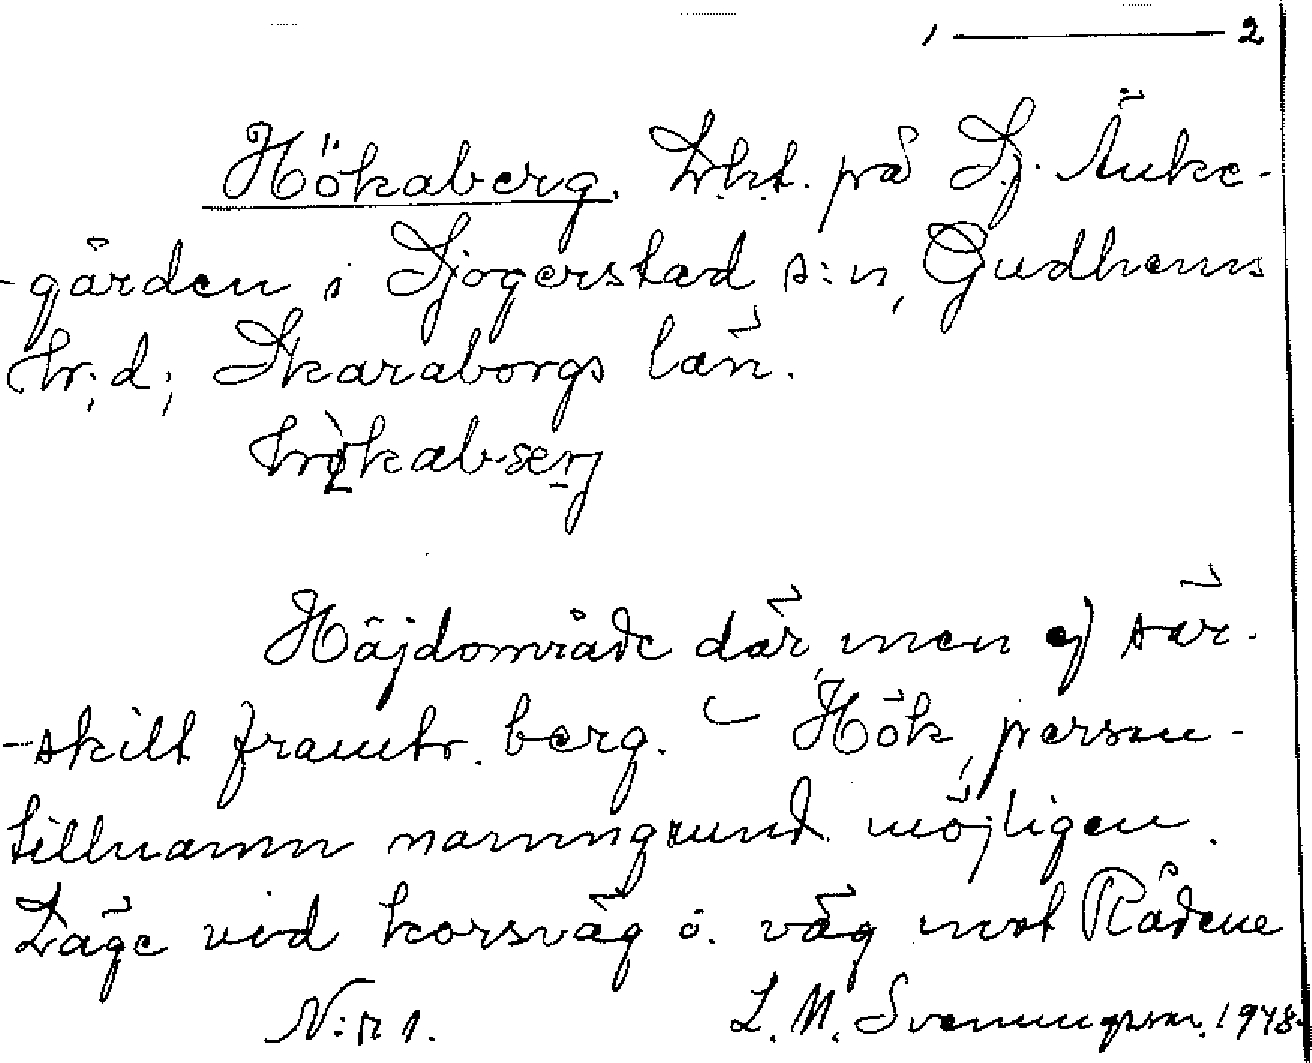 1 ——— 2
Hökaberg. Lht. på Sj. Änke-
-gården i Sjogerstad s:n, Gudhems
hr.d; Skaraborgs län.
Höjdområde där, men ej sär-
-skilt framtr. berg. – Hök, person-
tillnamn namngrund möjligen.
Läge vid korsväg o. väg mot Rådene
N:r 1. L. M. Svenungsson. 1948.